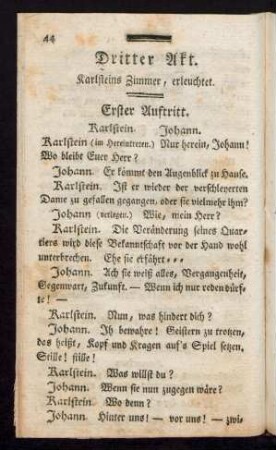 44
Dritter Akt.
Karlsteins Zimmer, erleuchtet.
Erster Auftritt.
Karlstein. Johann.
Karlstein (im Hereintreten.) Nur herein, Johann!
Wo bleibt Euer Herr?
Johann. Er kömmt den Augenblick zu Hause.
Karlstein. Ist er wieder der verschleyerten
Dame zu gefallen gegangen, oder sie vielmehr ihm?
Johann (verlegen.) Wie, mein Herr?
Karlstein. Die Veränderung seines Quar-
tiers wird diese Bekanntschaft vor der Hand wohl
unterbrechen. Ehe sie erfährt...
Johann. Ach sie weiß alles, Vergangenheit,
Gegenwart, Zukunft. — Wenn ich nur reden dürf-
te! —
Karlstein. Nun, was hindert dich?
Johann. Ih bewahre! Geistern zu trotzen,
das heißt, Kopf und Kragen auf's Spiel setzen.
Stille! stille!
Karlstein. Was willst du?
Johann. Wenn sie nun zugegen wäre?
Karlstein. Wo denn?
Johann. Hinter uns! — vor uns! — zwi-